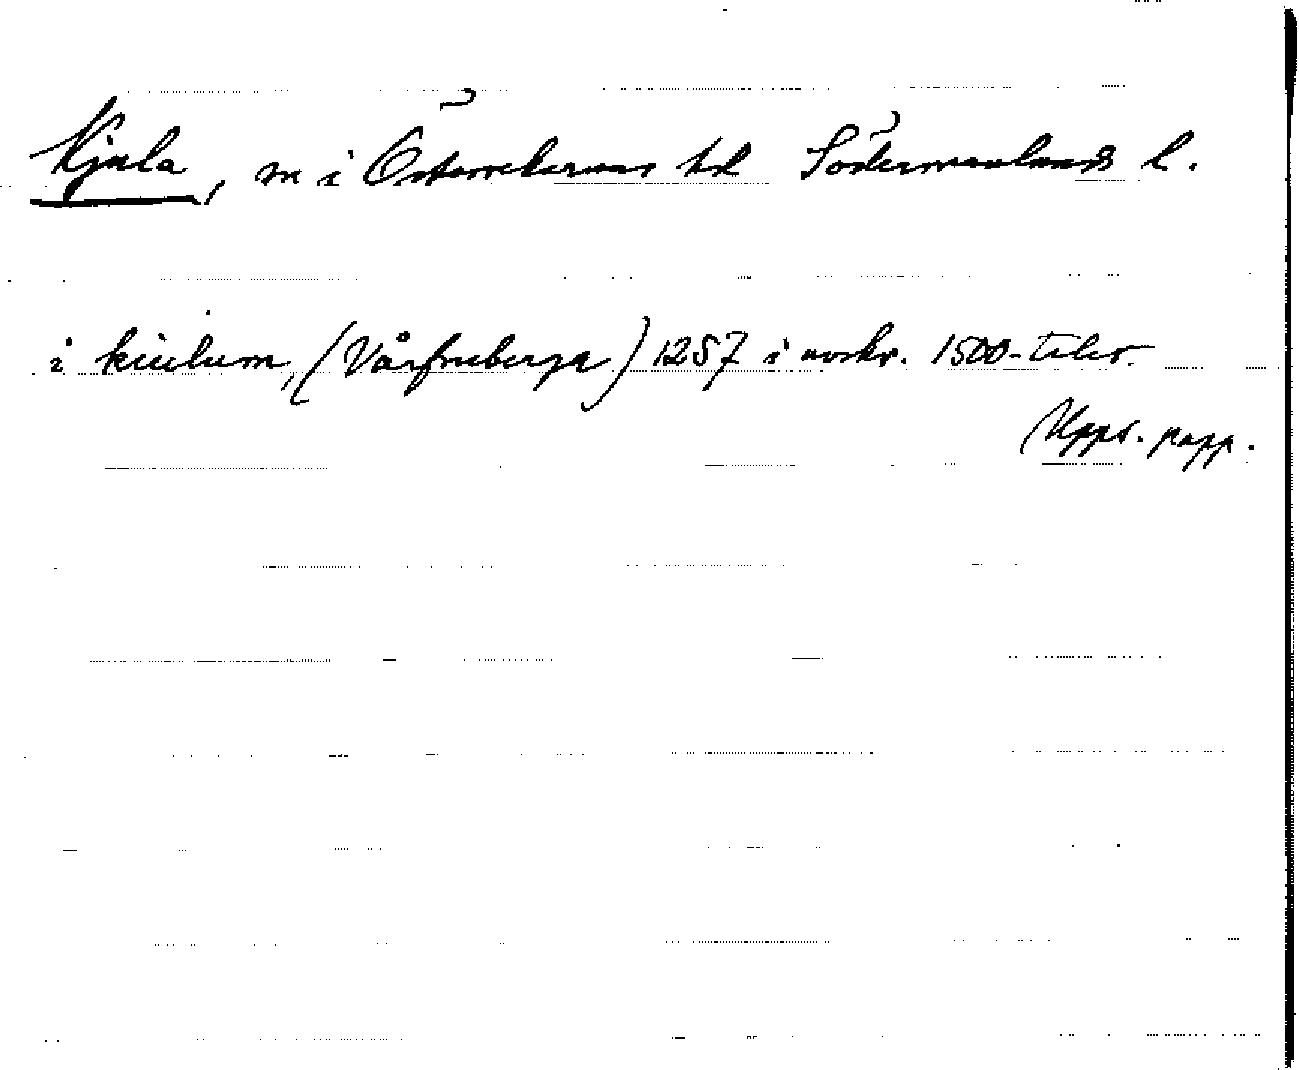 Kjula, sn i Österrekarnas hd Södermanlands l.
i kiulum, (Vårfruberga) 1257 i avskr. 1500-talet.
Upps. papp.